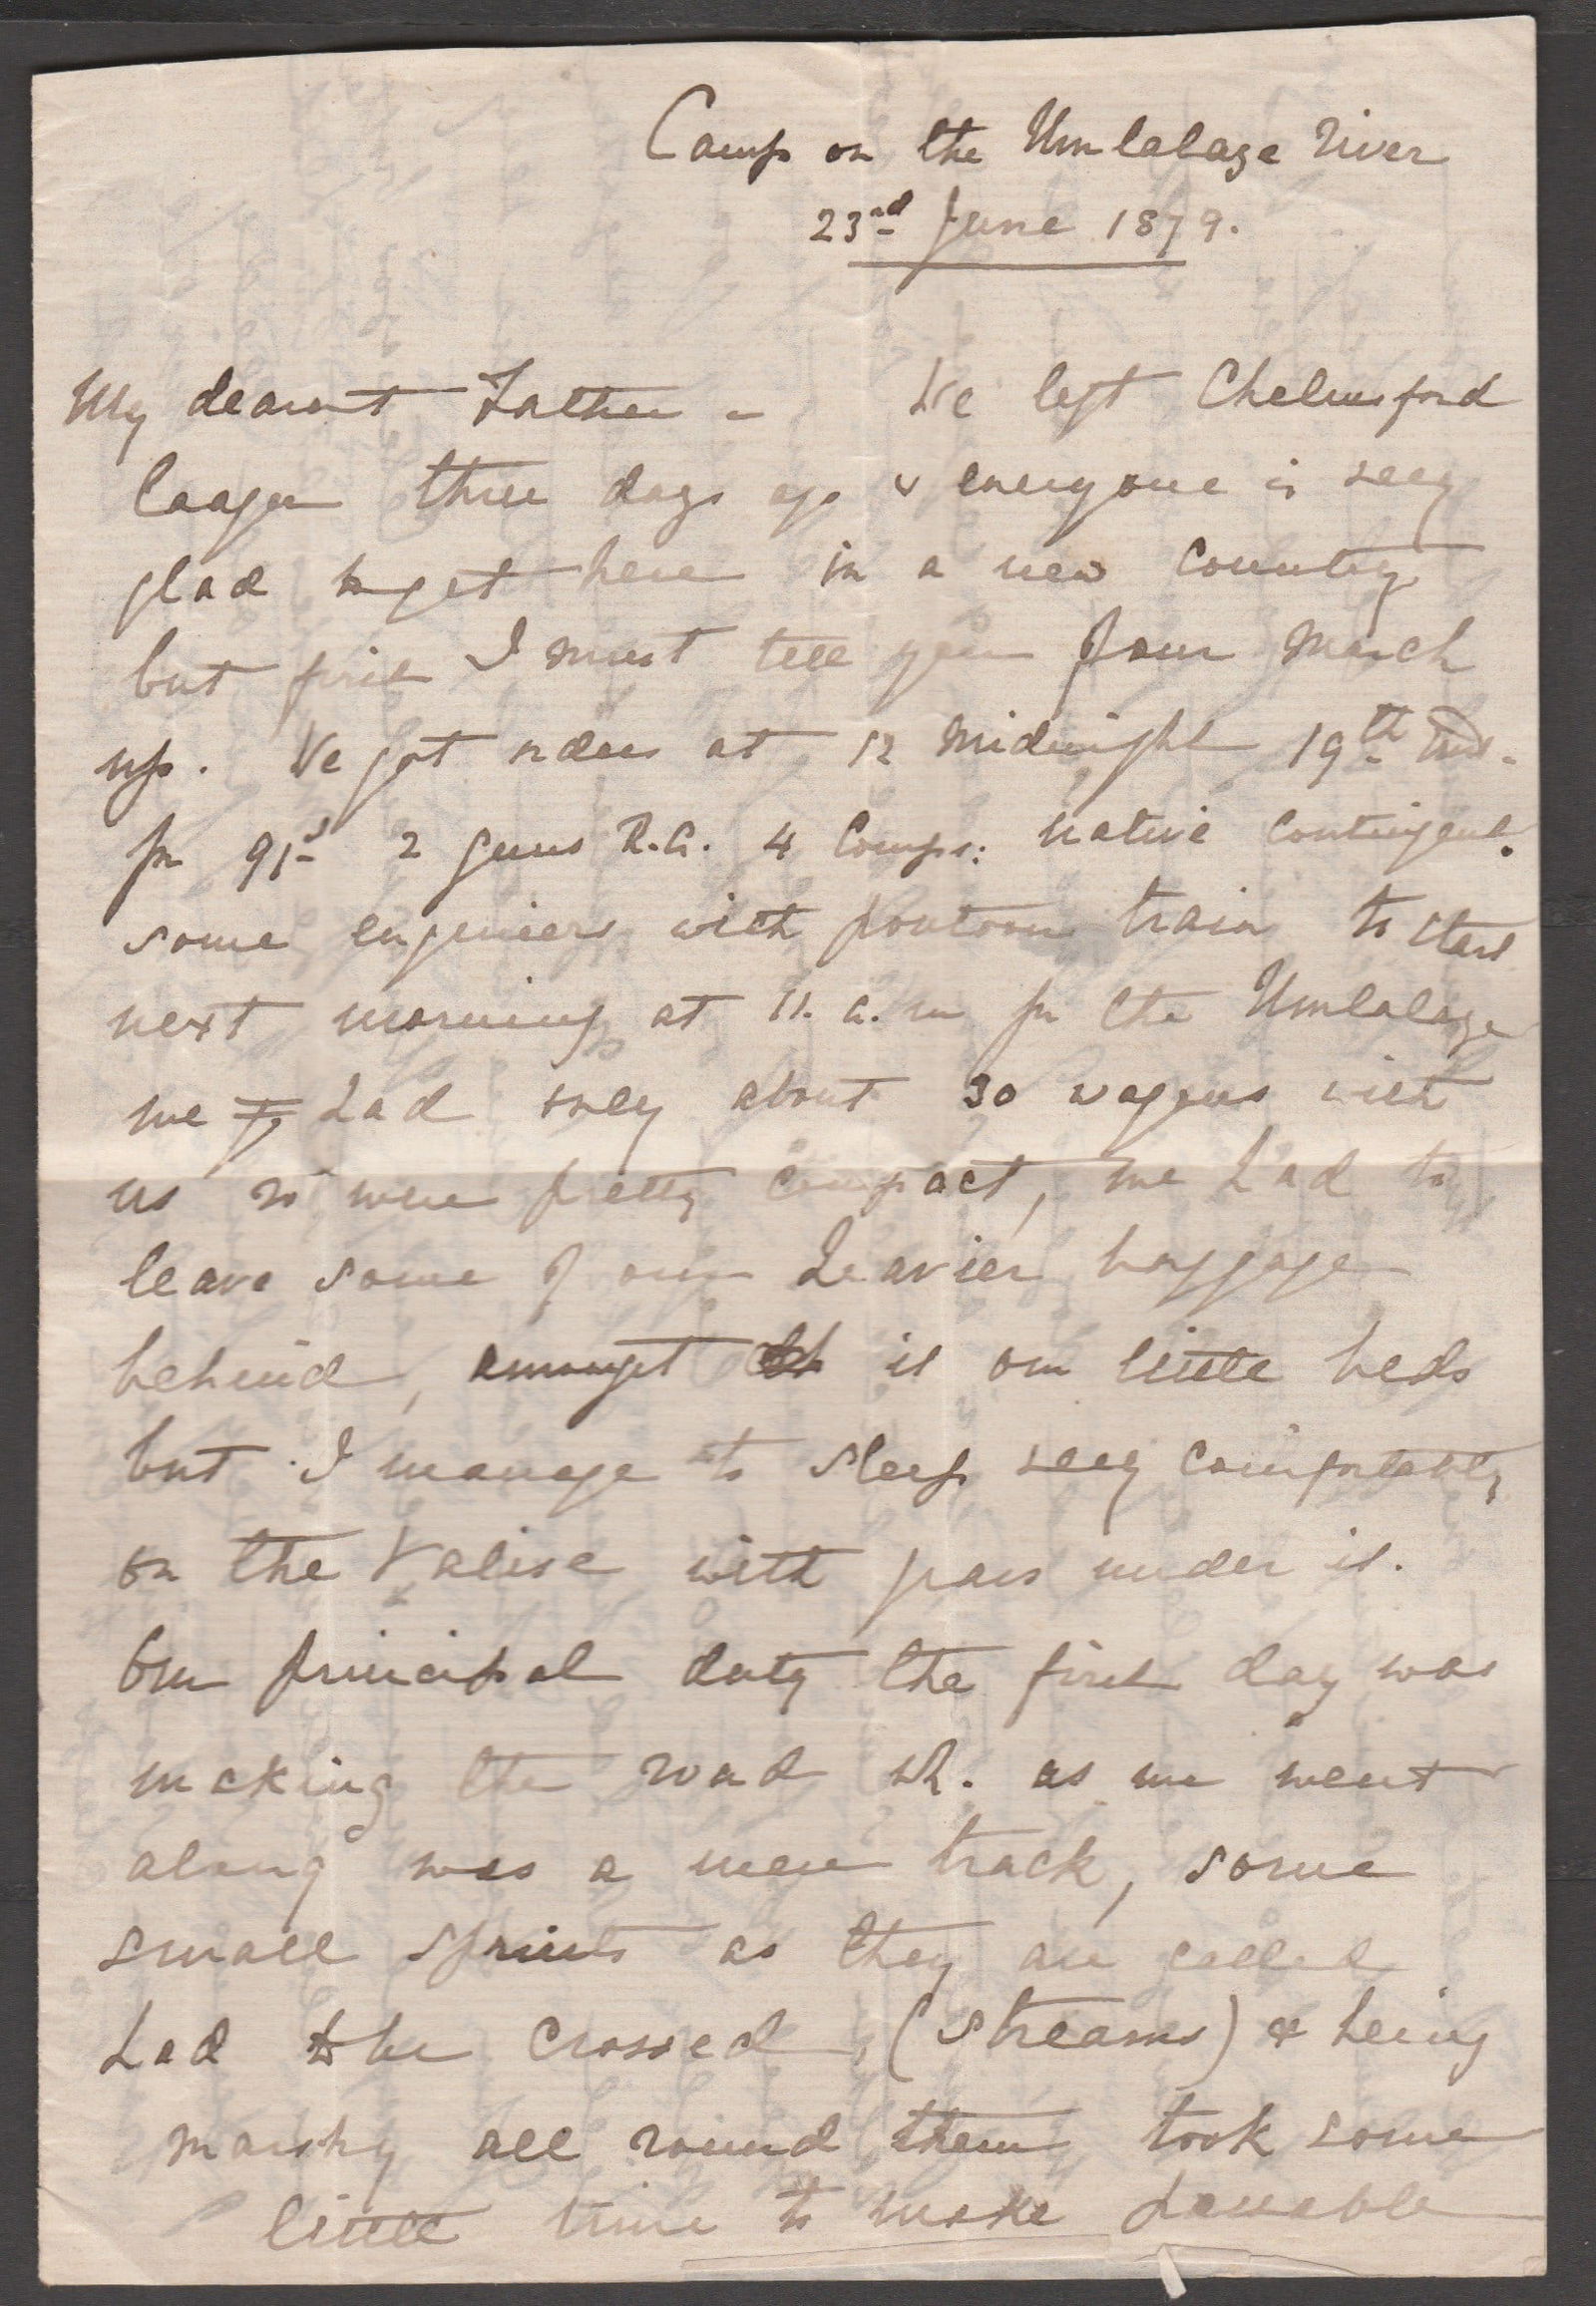 Camp on the Umlalaze River
23rd June 1879.
My dearest Father - We left Chelmsford
laager three days ago & everyone is very
glad to get here in a new country
but first I must tell you of our march
up. We got orders at 12 midnight 19th Inst.
for 91st 2 guns R.A. 4 Comps: native contingent.
some engineers with pontoon train to start
next morning at 11. a.m for the Umlalaze
we had only about 30 waggons with
us so were pretty compact, we had to
leave some of our heavier baggage
behind, amongst it our little beds
but I manage to sleep very comfortably
on the valise with grass under it.
Our principal duty the first day was
making the road wh. as we went
along was a mere track, some
small spruits as they are called
had to be crossed, (streams) & being
marshy all round them took some
little time to make passable